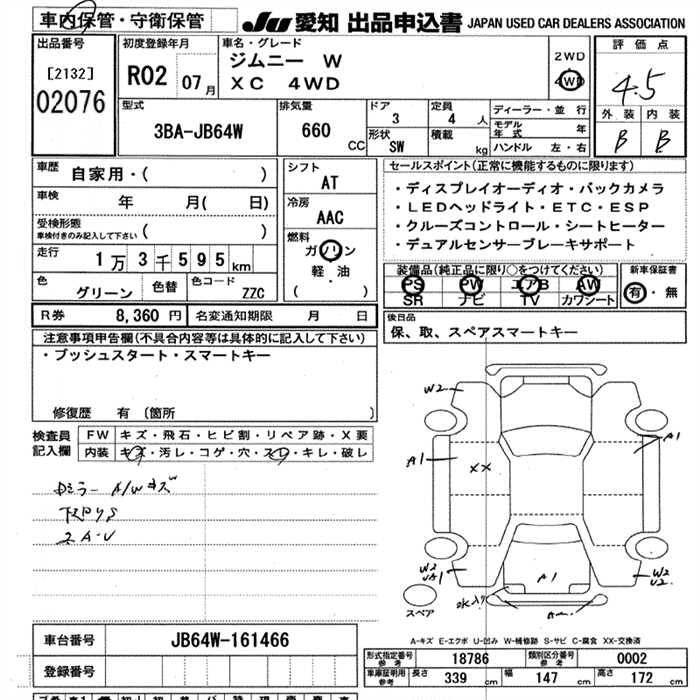 車内保管・守衛保管
JU 愛知 出品申込書 JAPAN USED CAR DEALERS ASSOCIATION
出品番号
[2132]
02076
初度登録年月
R02 07月
車名・グレード
ジムニー W
XC 4WD
2WD
4WD
評価点
4.5
外装 内装
B B
型式
3BA-JB64W
排気量
660
CC
ドア
3
定員
4 人
形状
SW
積載
kg
ディーラー・並行
モデル年式 年
ハンドル 左・右
車歴
自家用・( )
車検
年 月( 日)
受検形態
車検付きのみ記入して下さい ( )
走行
1万3千595km
色
グリーン
色替
色コード
ZZC
シフト
AT
冷房
AAC
燃料
ガソリン
軽・油
( )
セールスポイント(正常に機能するものに限ります)
・ディスプレイオーディオ・バックカメラ
・LEDヘッドライト・ETC・ESP
・クルーズコントロール・シートヒーター
・デュアルセンサーブレーキサポート
装備品(純正品に限り○をつけてください)
PS PW エアB AW
SR ナビ TV カワシート
新車保証書
有・無
R券 8,360円 名変通知期限 月 日
後日品
保、取、スペアスマートキー
注意事項申告欄(不具合内容等は具体的に記入して下さい)
・プッシュスタート・スマートキー
修復歴 有 (箇所 )
検査員記入欄
FW キズ・飛石・ヒビ割・リペア跡・X要
内装 キズ・汚レ・コゲ・穴・スレ・キレ・破レ
ミラー A/Wキズ
W2
A1
XX
A1
W2
W2
U2
A1
スペア
A-キズ E-エクボ U-凹み W-補修跡 S-サビ C-腐食 XX-交換済
車台番号 JB64W-161466
登録番号
型式指定番号 参考 18786 類別区分番号 参考 0002
車庫証明用 参考 長さ 339 cm 幅 147 cm 高さ 172 cm